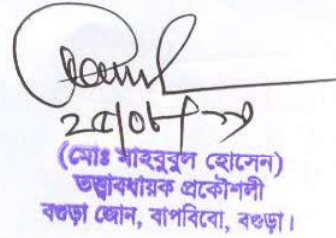 ২৫/০৮/২১
(মোঃ মাহবুবুল হোসেন)
তত্ত্বাবধায়ক প্রকৌশলী
বগুড়া জোন, বাপবিবো, বগুড়া।